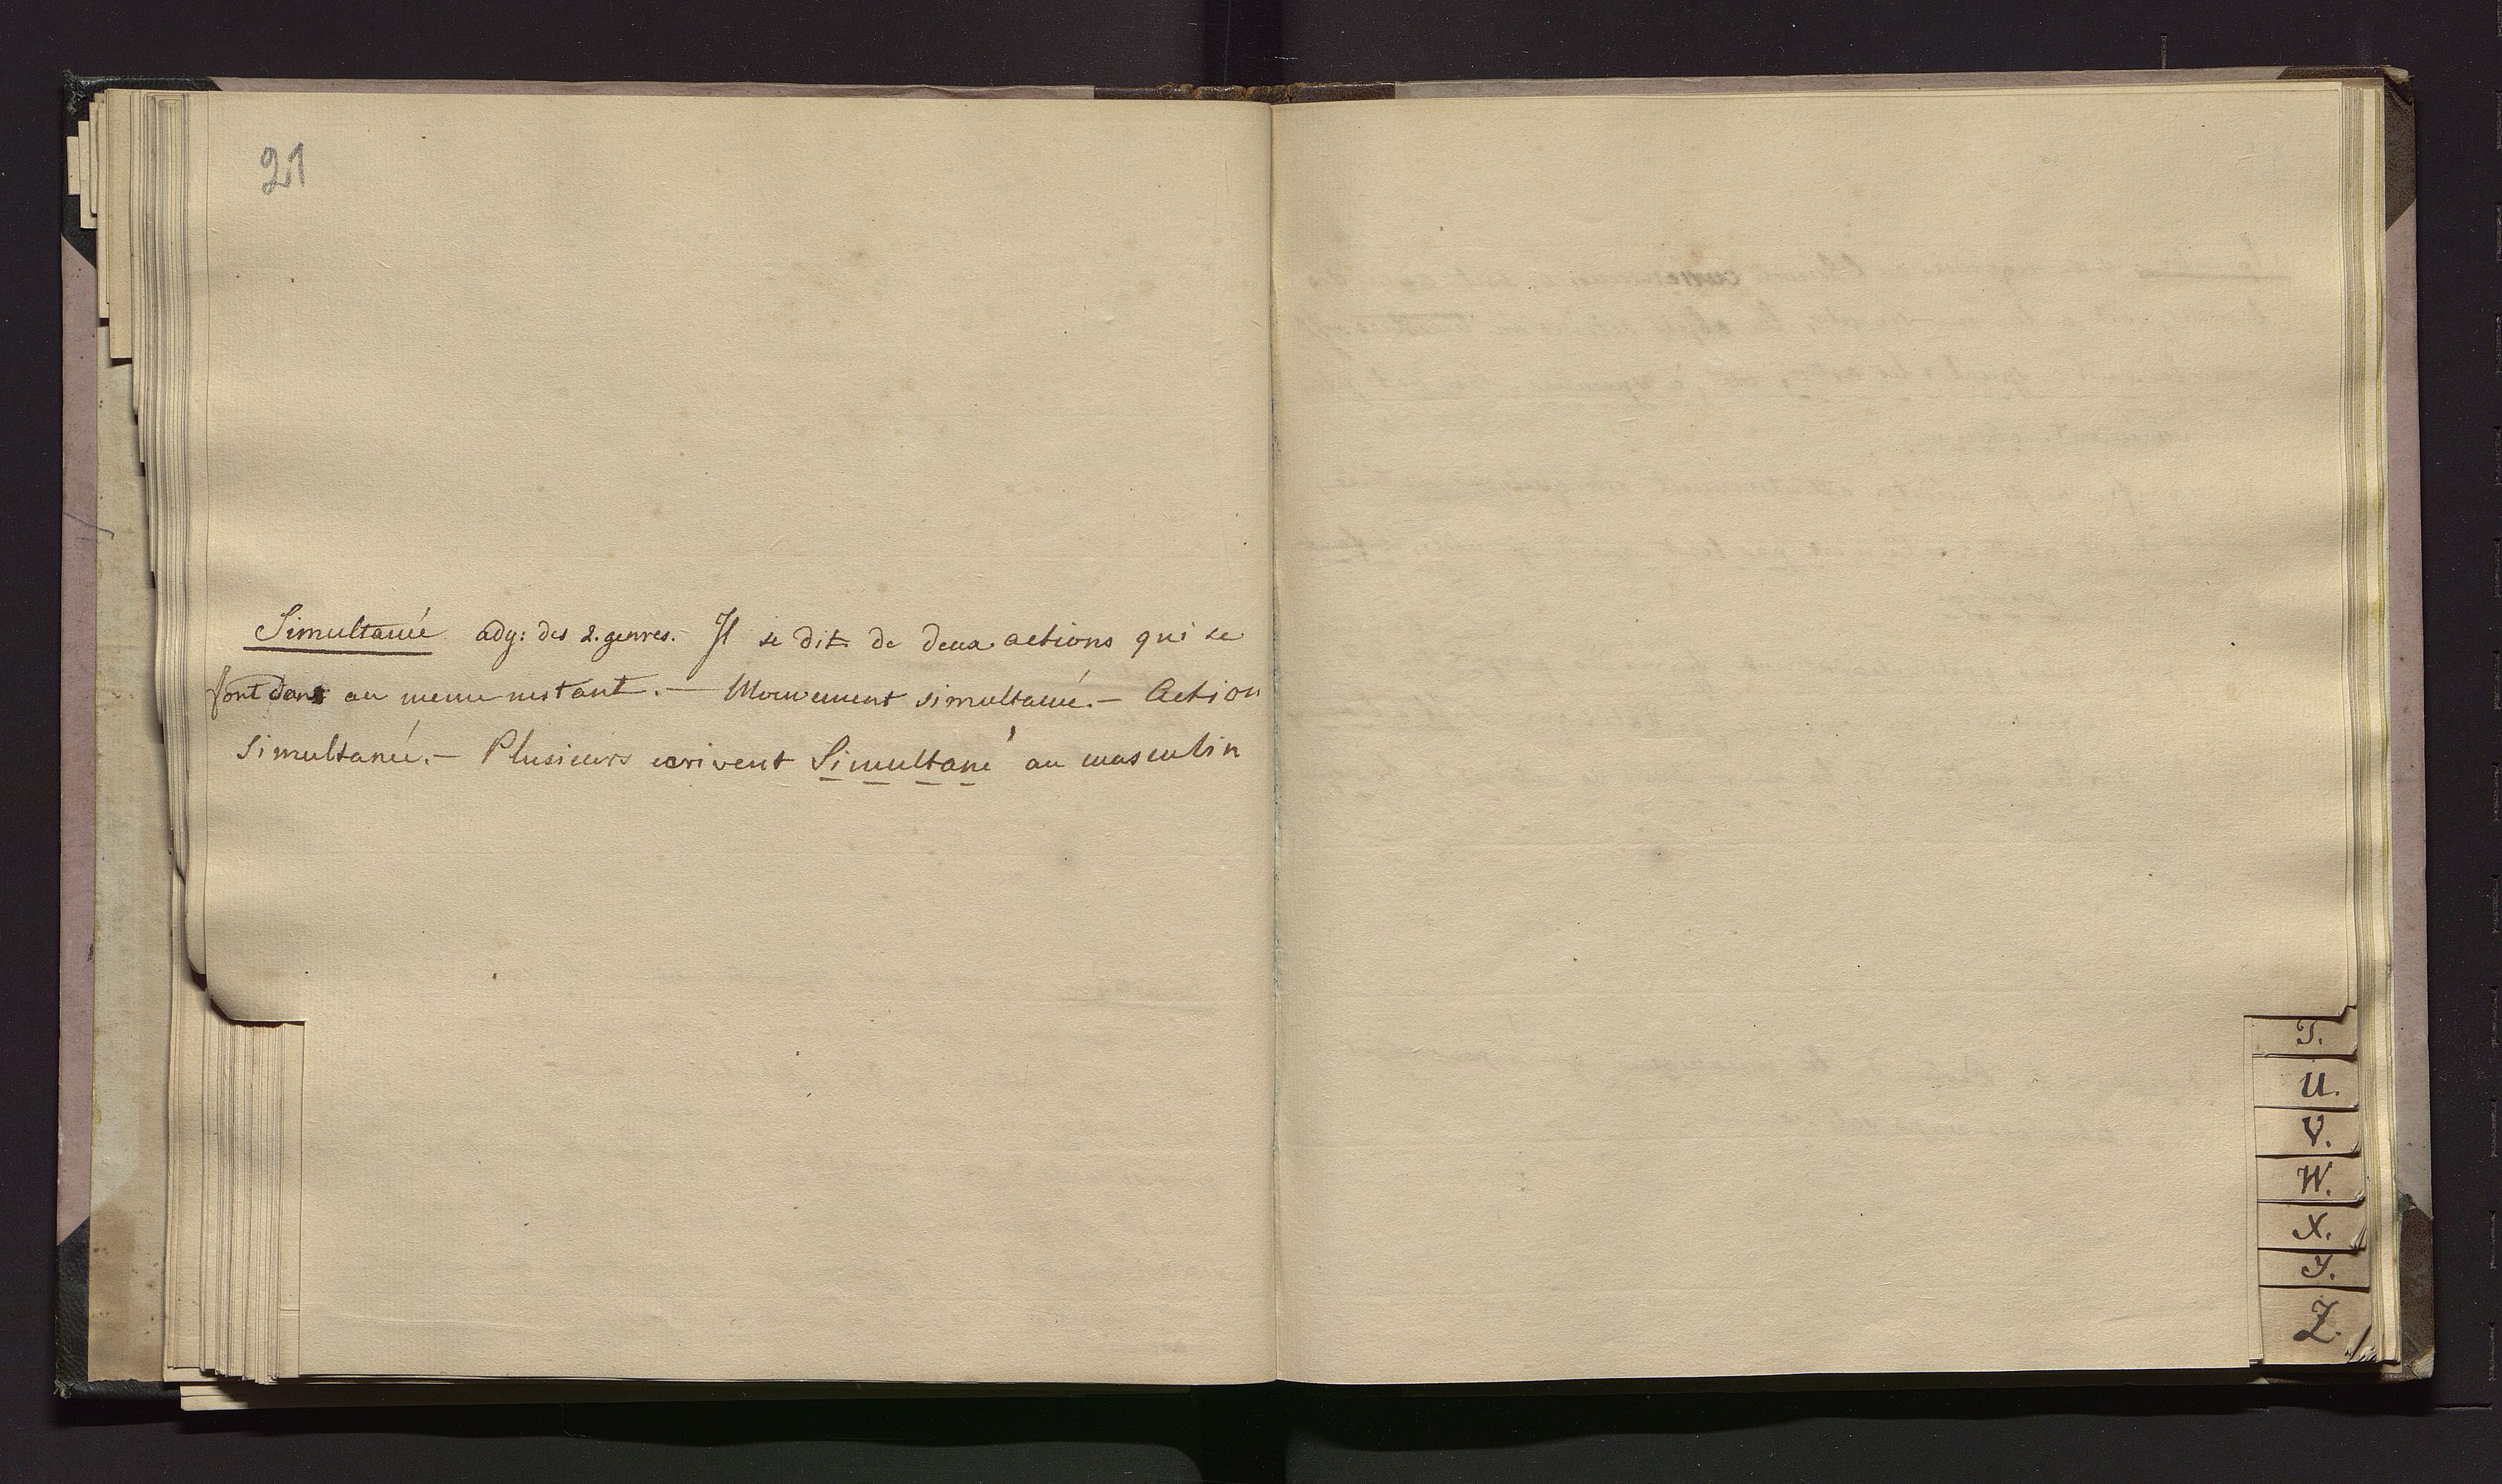 21
Simultanée adj: des 2. genres. Il se dit de deux actions qui se
font dans au meme instant. — Mouvement simultanée. — Action
simultanée. — Plusieurs ecrivent Simultané au masculin
T.
U.
V.
W.
X.
Y.
Z.